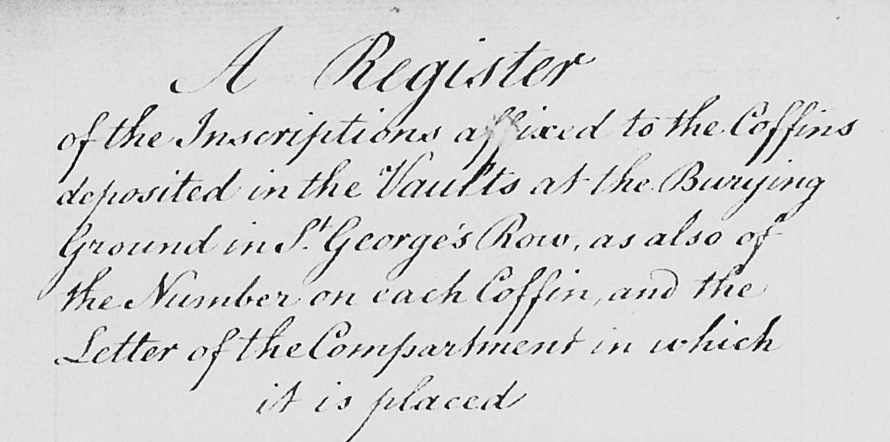 A Register
of the Inscriptions affixed to the Coffins
deposited in the Vaults at the Burying
Ground in St. George's Row, as also of
the Number on each Coffin, and the
Letter of the Compartment in which
it is placed